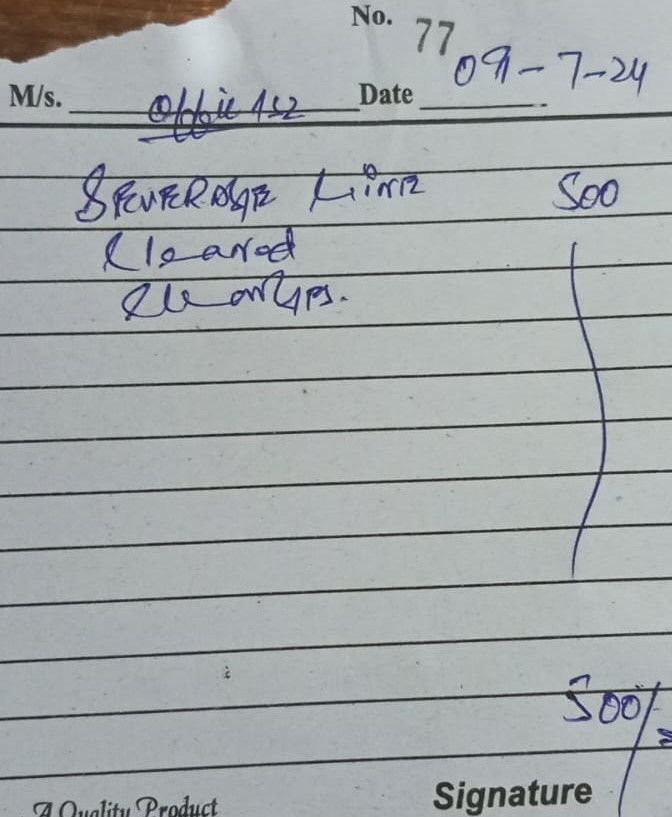 No. 77
M/s. Office Date 09-7-24
SEVERAGE Line 500
Cleaned
500/-
A Quality Product Signature